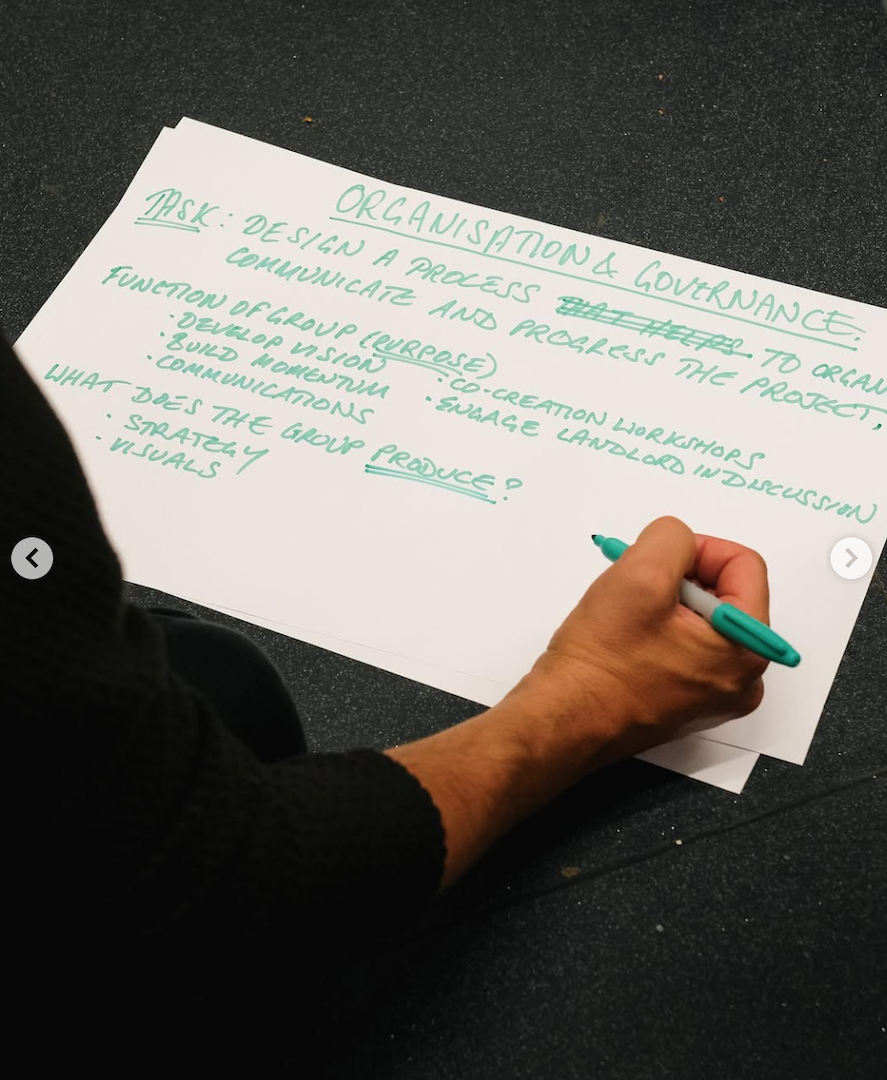 ORGANISATION & GOVERNANCE.
TASK: DESIGN A PROCESS THAT HELPS TO ORGAN
COMMUNICATE AND PROGRESS THE PROJECT,
FUNCTION OF GROUP (PURPOSE)
· DEVELOP VISION
· BUILD MOMENTUM
· COMMUNICATIONS
· CO-CREATION WORKSHOPS
· ENGAGE LANDLORD IN DISCUSSION
WHAT DOES THE GROUP PRODUCE?
· STRATEGY
· VISUALS